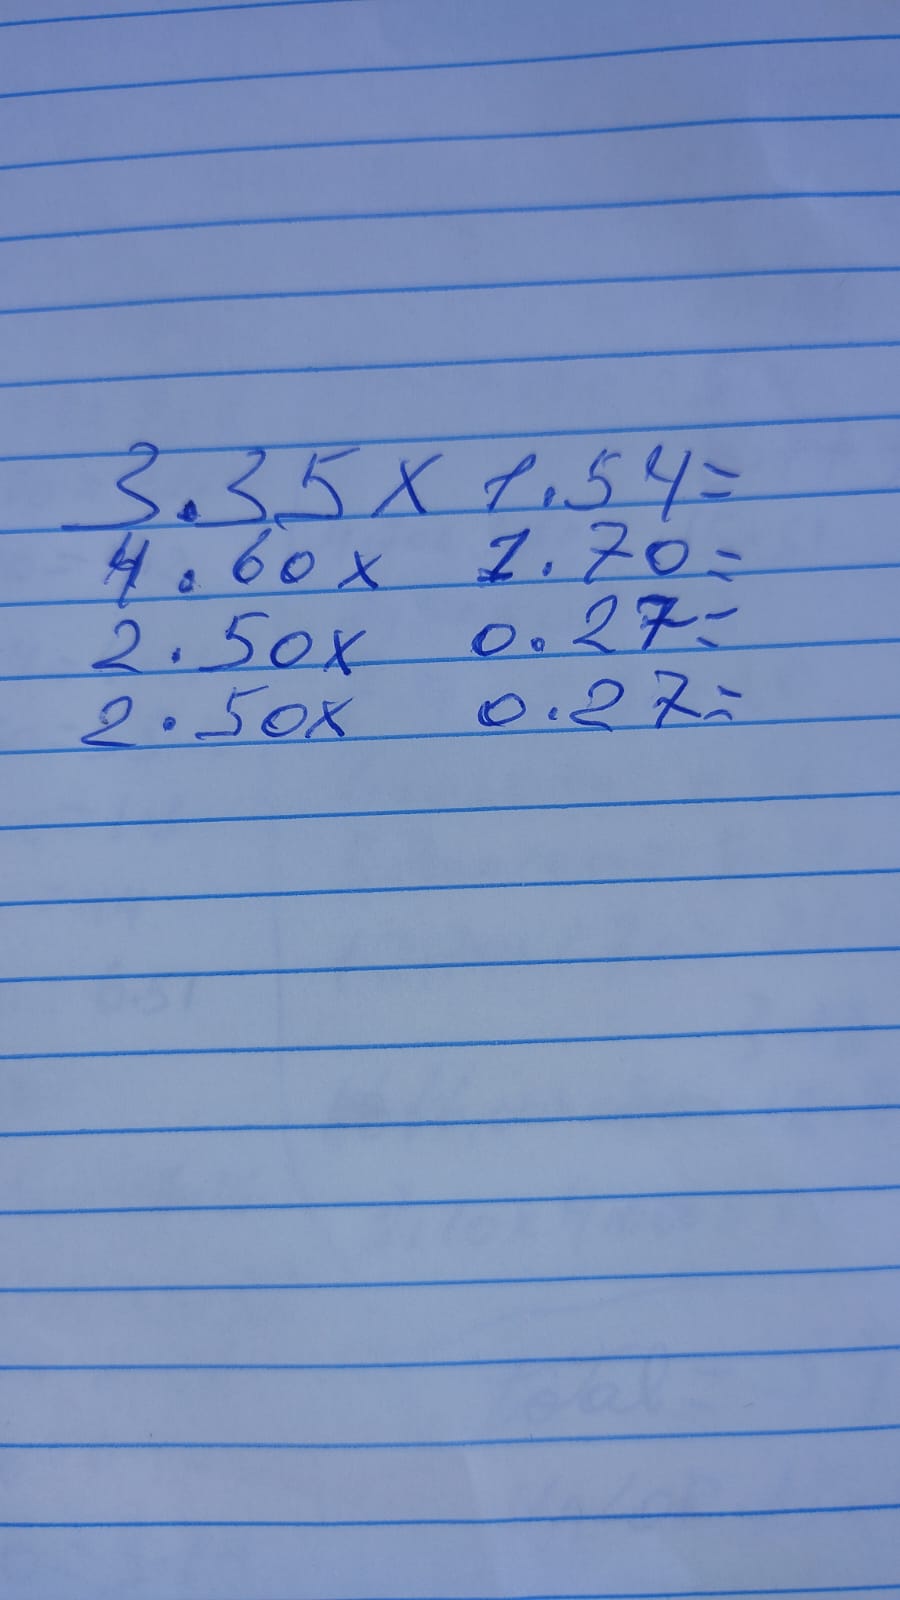 3.35 x 1.54=
4.60 x 1.70=
2.50x 0.27=
2.50x 0.27=